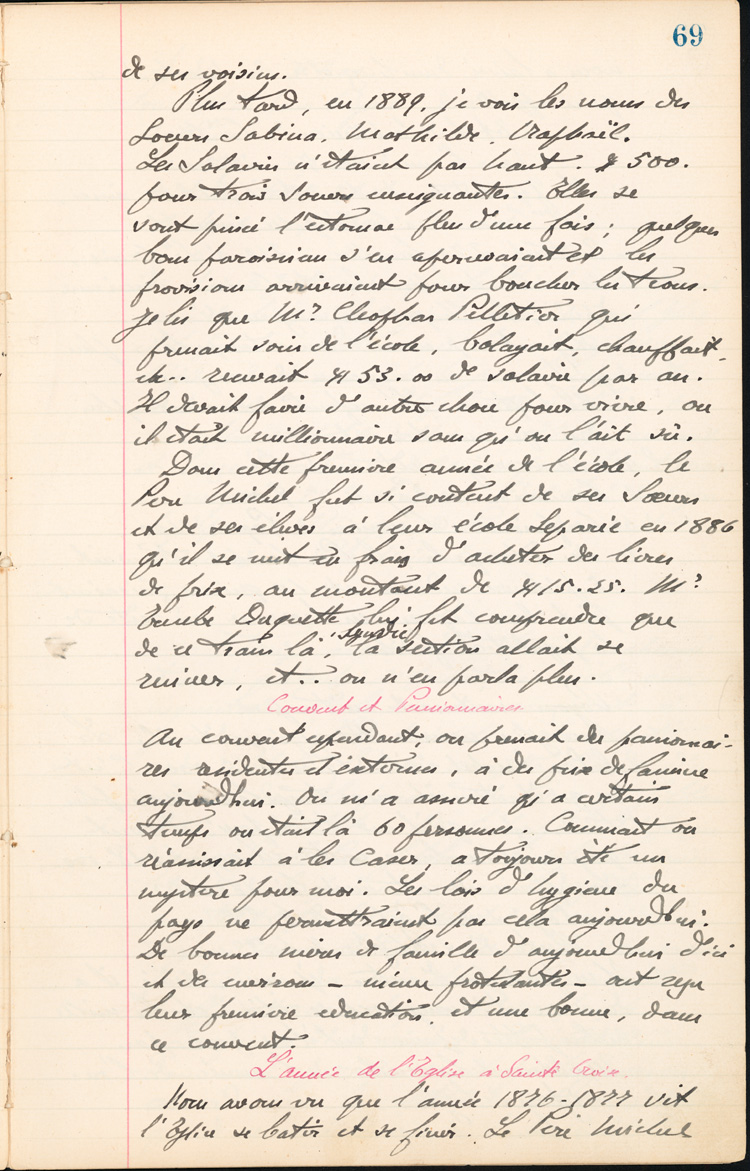 69
de ses voisins.
Plus tard, en 1889, je vois les noms des
Soeurs Sabina, Mathilde, Raphaël.
Les Salaires n'étaient pas haut. $500.
pour trois Soeurs enseignantes. Elles se
sont pincé l'estomac plus d'une fois; quelques
bons paroissiens s'en apercevaient et les
provisions arrivaient pour boucher les trous.
Je lis que Mr Cléophas Pelletier qui
prenait soin de l'école, balayait, chauffait,
etc.. recevait $53.00 de salaire par an.
Il devait faire d'autre chose pour vivre, ou
il était millionnaire sans qu'on l'ait sû.
Dans cette première année de l'école, le
Père Michel fut si content de ses Soeurs
et de ses élèves à leur école Separée en 1886
qu'il se mit en frais d'acheter des livres
de prix, au montant de $15.25. Mr
Duquette lui fit comprendre que
de ce train là, la section allait se
ruiner, et.. on n'en parla plus.
Couvent et Pensionnaires
Au couvent cependant, on prenait des pensionnai-
res residents et externes, à des prix de famine
aujourdhui. On m'a assuré qu'a certain
temps on était là 60 personnes. Comment on
réussissait à les Caser, a toujours été un
mystère pour moi. Les lois d'hygiene du
pays ne permettraient pas cela aujourdhui.
De bonnes mères de famille d'aujourdhui d'ici
et des environs – même protestantes – ont reçu
leur première education, et une bonne, dans
ce couvent.
L'année de l'Eglise à Sainte Croix.
Nous avons vu que l'année 1876-1877 vit
l'Eglise se batir et se finir. Le Père Michel